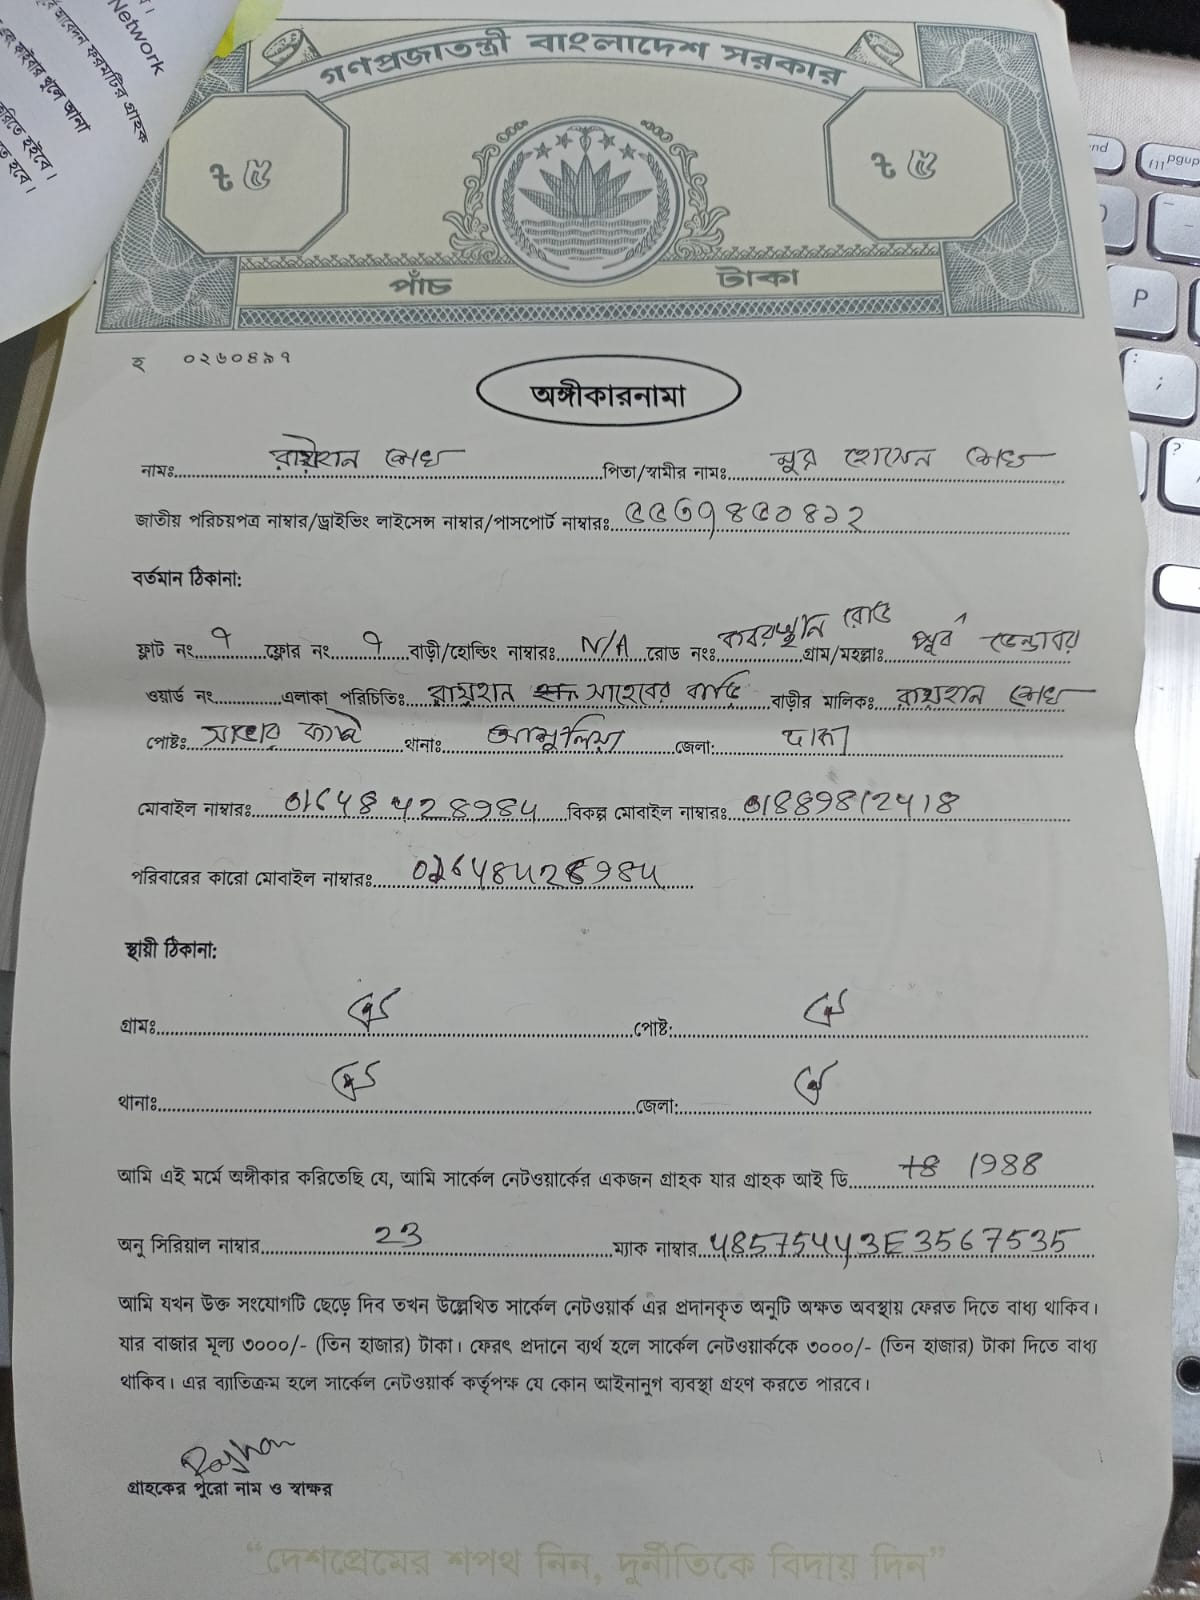 Network
আবেদন ফরমটির গ্রাহক
খুলে আনা
হইবে।
হবে।
গণপ্রজাতন্ত্রী বাংলাদেশ সরকার
৳ ৫ ৳ ৫
পাঁচ টাকা
হ ০২৬০৪৯৭
অঙ্গীকারনামা
নামঃ রায়হান শেখ পিতা/স্বামীর নামঃ নুর হোসেন শেখ
জাতীয় পরিচয়পত্র নাম্বার/ড্রাইভিং লাইসেন্স নাম্বার/পাসপোর্ট নাম্বারঃ ৫৫৩৭৪৫০৪১২
বর্তমান ঠিকানা:
ফ্লাট নং ৭ ফ্লোর নং ৭ বাড়ী/হোল্ডিং নাম্বারঃ N/A রোড নংঃ কবরস্থান রোড গ্রাম/মহল্লাঃ পূর্ব ডেন্ডাবর
ওয়ার্ড নং এলাকা পরিচিতিঃ রায়হান সাহেবের বাড়ি বাড়ীর মালিকঃ রায়হান শেখ
পোষ্টঃ থানাঃ আশুলিয়া জেলা: ঢাকা
মোবাইল নাম্বারঃ বিকল্প মোবাইল নাম্বারঃ 01889812418
পরিবারের কারো মোবাইল নাম্বারঃ
স্থায়ী ঠিকানা:
গ্রামঃ ঐ পোষ্ট: ঐ
থানাঃ ঐ জেলা: ঐ
আমি এই মর্মে অঙ্গীকার করিতেছি যে, আমি সার্কেল নেটওয়ার্কের একজন গ্রাহক যার গ্রাহক আই ডি 1988
অনু সিরিয়াল নাম্বার 23 ম্যাক নাম্বার 485754443E3567535
আমি যখন উক্ত সংযোগটি ছেড়ে দিব তখন উল্লেখিত সার্কেল নেটওয়ার্ক এর প্রদানকৃত অনুটি অক্ষত অবস্থায় ফেরত দিতে বাধ্য থাকিব।
যার বাজার মূল্য ৩০০০/- (তিন হাজার) টাকা। ফেরৎ প্রদানে ব্যর্থ হলে সার্কেল নেটওয়ার্ককে ৩০০০/- (তিন হাজার) টাকা দিতে বাধ্য
থাকিব। এর ব্যাতিক্রম হলে সার্কেল নেটওয়ার্ক কর্তৃপক্ষ যে কোন আইনানুগ ব্যবস্থা গ্রহণ করতে পারবে।
Rayhan
গ্রাহকের পুরো নাম ও স্বাক্ষর
“দেশপ্রেমের শপথ নিন, দুর্নীতিকে বিদায় দিন”